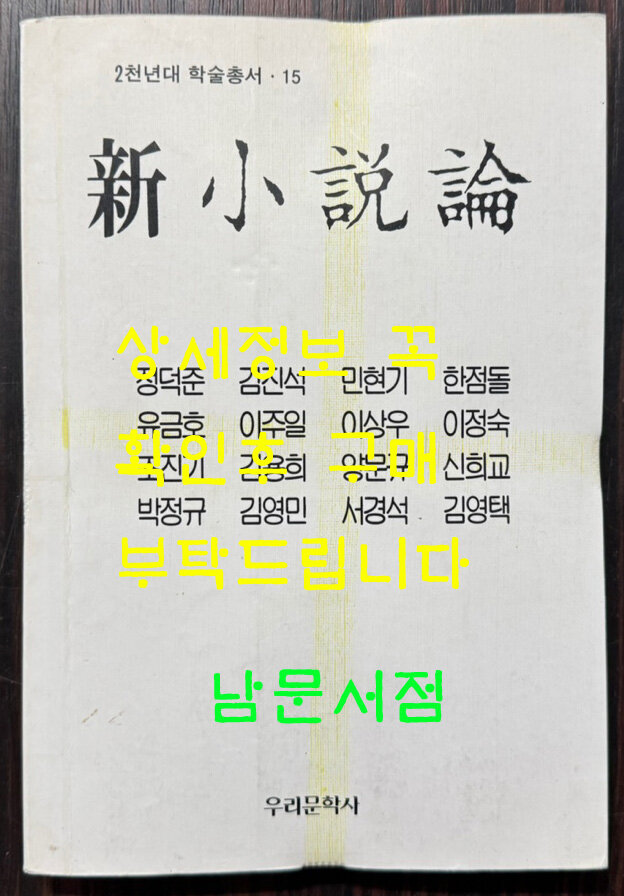 2천년대 학술총서 · 15
新小説論
상세정보 꼭
정덕준 김진석 민현기 한점돌
유금호 이주일 이상우 이정숙
확인후 구매
조진기 김용희 양문규 신희교
박정규 김영민 서경석 김영택
부탁드립니다
남문서점
우리문학사